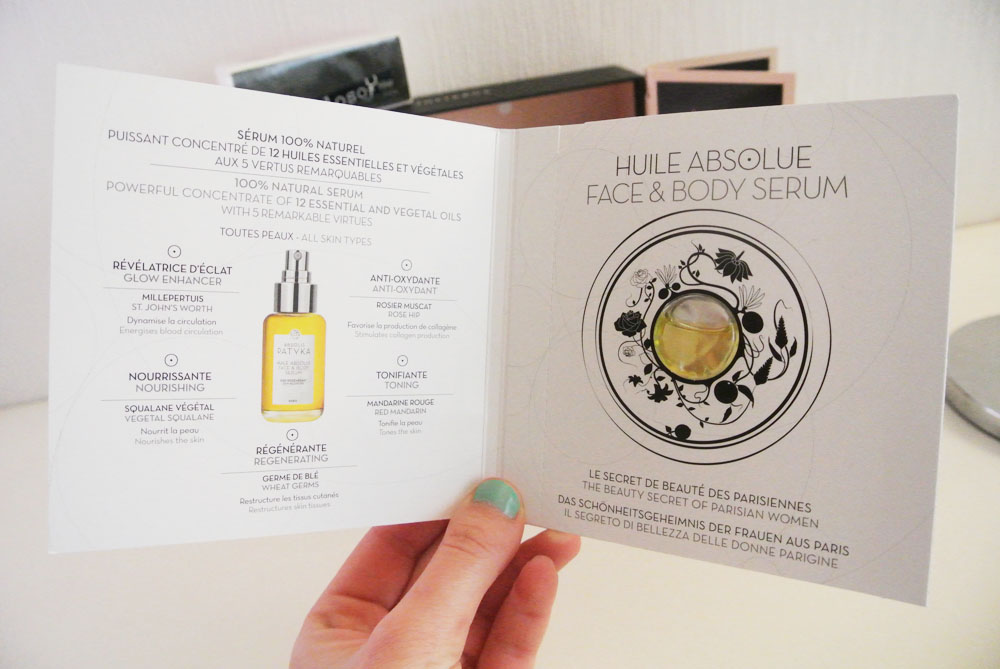 SÉRUM 100% NATUREL
PUISSANT CONCENTRÉ DE 12 HUILES ESSENTIELLES ET VÉGÉTALES
AUX 5 VERTUS REMARQUABLES
100% NATURAL SERUM
POWERFUL CONCENTRATE OF 12 ESSENTIAL AND VEGETAL OILS
WITH 5 REMARKABLE VIRTUES
TOUTES PEAUX - ALL SKIN TYPES
RÉVÉLATRICE D'ÉCLAT
GLOW ENHANCER
MILLEPERTUIS
ST. JOHN'S WORTH
Dynamise la circulation
Energises blood circulation
NOURRISSANTE
NOURISHING
SQUALANE VÉGÉTAL
VEGETAL SQUALANE
Nourrit la peau
Nourishes the skin
PATYKA
HUILE ABSOLUE
FACE & BODY
SERUM
ANTI-OXYDANTE
ANTI-OXYDANT
ROSIER MUSCAT
ROSE HIP
Favorise la production de collagène
Stimulates collagen production
TONIFIANTE
TONING
MANDARINE ROUGE
RED MANDARIN
Tonifie la peau
Tones the skin
RÉGÉNÉRANTE
REGENERATING
GERME DE BLÉ
WHEAT GERMS
Restructure les tissus cutanés
Restructures skin tissues
HUILE ABSOLUE
FACE & BODY SERUM
LE SECRET DE BEAUTÉ DES PARISIENNES
THE BEAUTY SECRET OF PARISIAN WOMEN
DAS SCHÖNHEITSGEHEIMNIS DER FRAUEN AUS PARIS
IL SEGRETO DI BELLEZZA DELLE DONNE PARIGINE